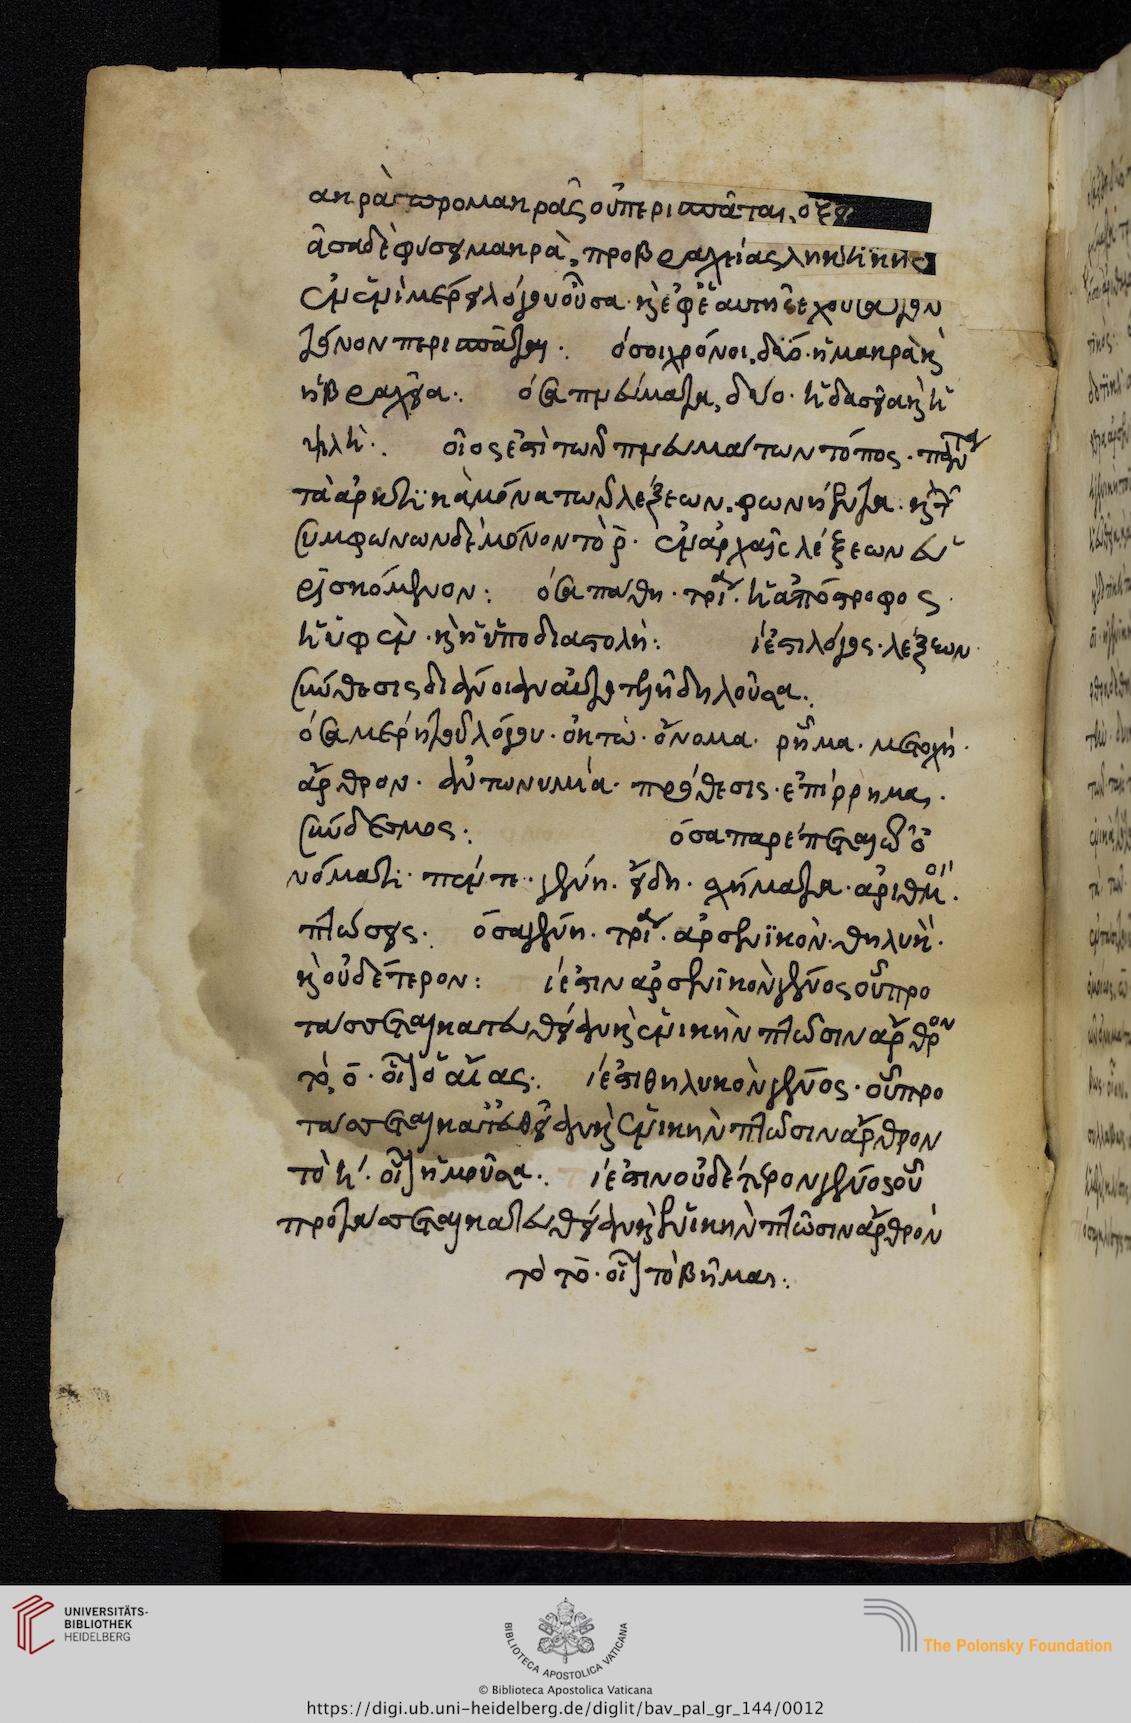 ακρὰ προμακρᾶς οὐ περισπᾶται. οξυ
ᾶσα δὲ φύσει μακρὰ, πρὸ βραχείας ληκτικῆς
ἐν ἑνὶ μέρει λόγου οὖσα. καὶ ἐφ ἑαυτῆς ἔχουσα τὸν
τόνον περισπᾶται. ὅσοι χρόνοι. δύο. ἡ μακρὰ καὶ
ἡ βραχεῖα. ὅσα πνεύματα, δύο. ἡ δασεῖα καὶ ἡ
ψιλή. οἷος ἐστὶ τῶν πνευμάτων τόπος. πάντα
τὰ ἀρκτικὰ μόνα τῶν λέξεων. φωνήεντα. καὶ τῶν
συμφώνων δὲ μόνον τὸ ρ. ἐν ἀρχαῖς λέξεων εὑ
ρισκόμενον: ὅσα πάθη. τρία. ἡ ἀπόστροφος.
ἡ ὑφὲν. καὶ ἡ ὑποδιαστολή: τί ἐστι λόγος. λέξεων
σύνθεσις διάνοιαν αὐτοτελῆ δηλοῦσα.
ὅσα μέρη τοῦ λόγου. ὀκτὼ. ὄνομα. ρῆμα. μετοχή.
ἄρθρον. ἀντωνυμία. πρόθεσις. ἐπίρρημα.
σύνδεσμος: ὅσα παρέπεται τῷ ὀ
νόματι. πέντε. γένη. εἴδη. σχήματα. ἀριθμοί.
πτώσεις. ὅσα γένη. τρία. ἀρσενϊκὸν. θηλυκὴ.
καὶ οὐδέτερον: τί ἐστιν ἀρσενικὸν γένος οὗ προ
τάσσεται κατ' εὐθεῖαν καὶ ἑνικὴν πτῶσιν ἄρθρον
τὸ, ὁ. οἷον ὁ αἴας. τί ἐστι θηλυκὸν γένος. οὗ προ
τάσσεται κατ' εὐθεῖαν καὶ ἑνικὴν πτῶσιν ἄρθρον
τὸ ἡ. οἷον ἡ μοῦσα. τί ἐστιν οὐδέτερον γένος οὗ
προτάσσεται κατ' εὐθεῖαν καὶ ἑνικὴν πτῶσιν ἄρθρον
τὸ τὸ. οἷον τὸ βῆμα.
UNIVERSITÄTS-
BIBLIOTHEK
HEIDELBERG
BIBLIOTECA APOSTOLICA VATICANA
The Polonsky Foundation
© Biblioteca Apostolica Vaticana
https://digi.ub.uni-heidelberg.de/diglit/bav_pal_gr_144/0012